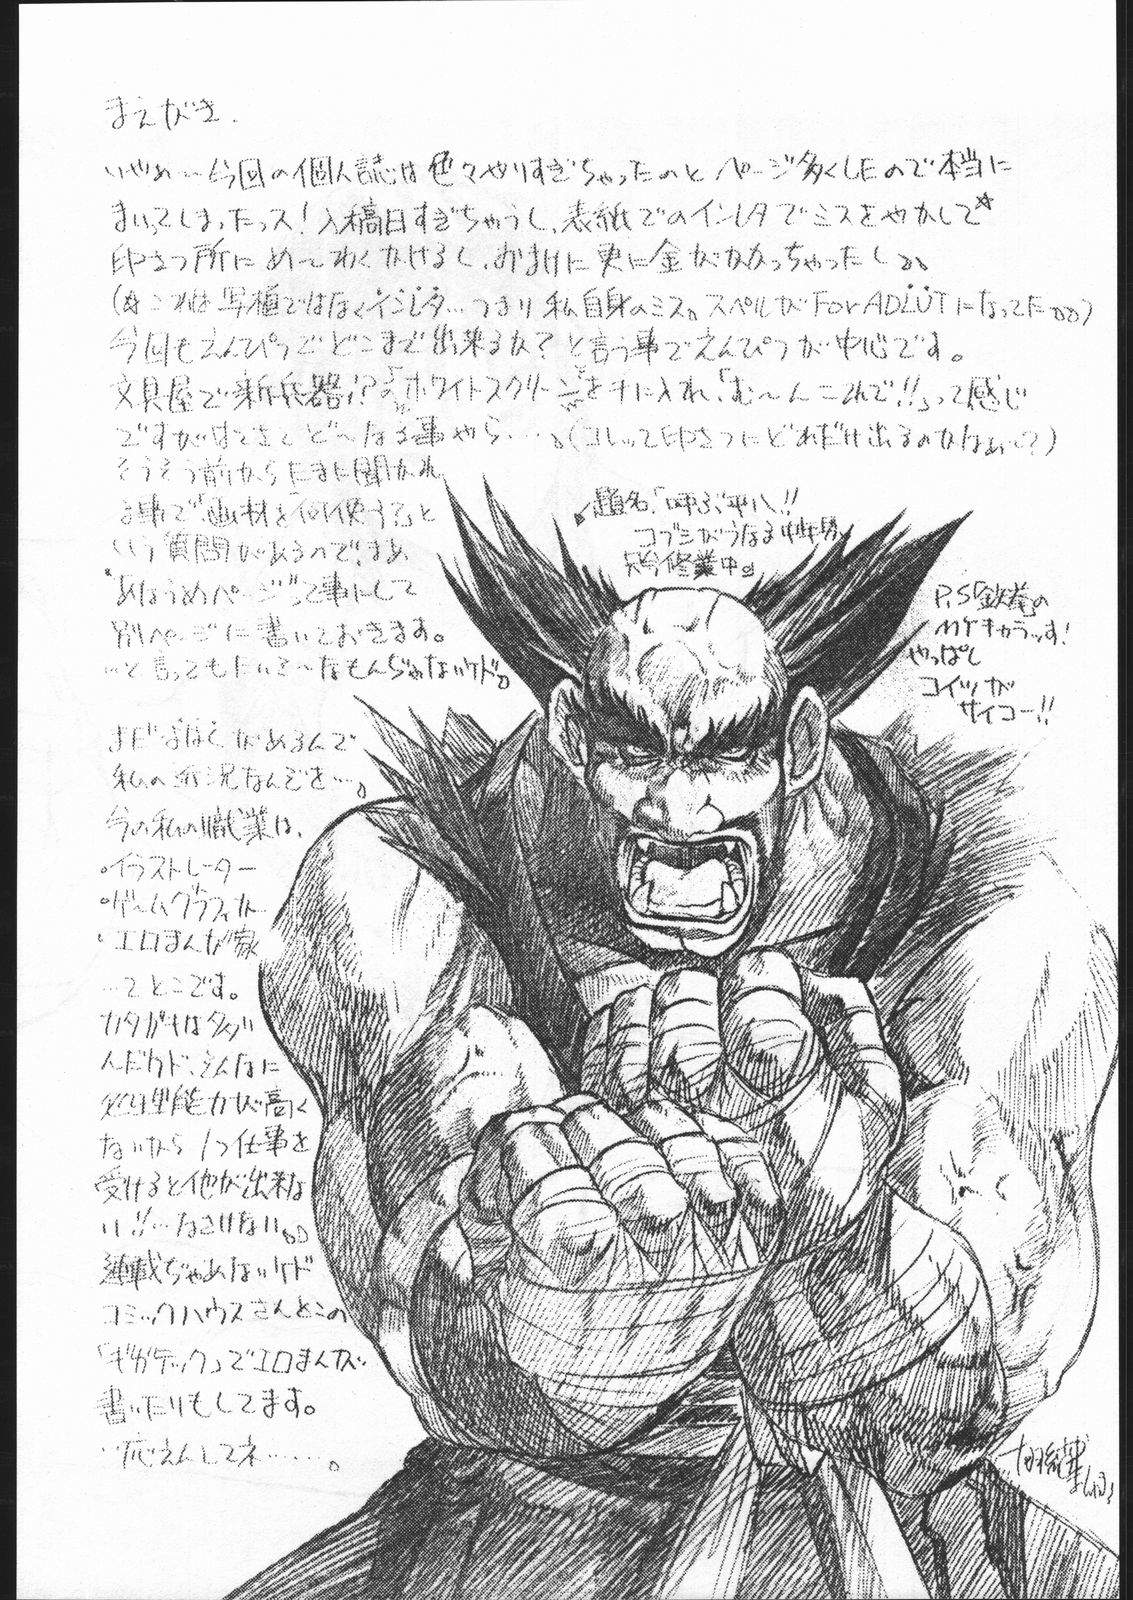 まえがき.
いやぁ…今回の個人誌は色々やりすぎちゃったのとページ多くしたので本当に
まいってしまったっス!入稿日すぎちゃうし、表紙でのインレタでミスをやかして☆
印さつ所にめーわくかけるし、おまけに更に金がかかっちゃったし。。
(☆これは写植ではなくインレタ…つまり私自身のミス。スペルがFor ADLUTになってた。。)
今回もえんぴつでどこまで出来るか?と言う事でえんぴつが中心です。
文具屋で新兵器!?の「ホワイトスクリーン」を手に入れ「む~んこれで!!」って感じ
ですがはてさてど~なる事やら……。(コレって印さつにどれだけ出るのかなぁ…?)
そうそう前からたまに聞かれ
る事で「画材を何使う?」と
いう質問があるので、まぁ
"あなうめページ"って事にして
別ページに書いておきます。
…と言ってもたいて~なもんぢゃないケド。
まだよはくがあるんで
私の近況なんでを…。
今の私の職業は、
・イラストレーター
・ゲームグラフィカー
・エロまんが家
…てとこです。
カタガキはタクサ
んだケド、そんなに
処理能力が高く
ないから1つ仕事を
受けると他が出来な
い!!…なさけない。。
連載ぢゃあないケド
コミックハウスさんとこの
「ギガテック」でエロまんが
書いたりもしてます。
…応えんしてネ……。
題名「叫ぶ平八!!
コブシがうなる
只今修業中。」
P.S「鉄拳」の
MYキャラっす!
やっぱし
コイツが
サイコー!!